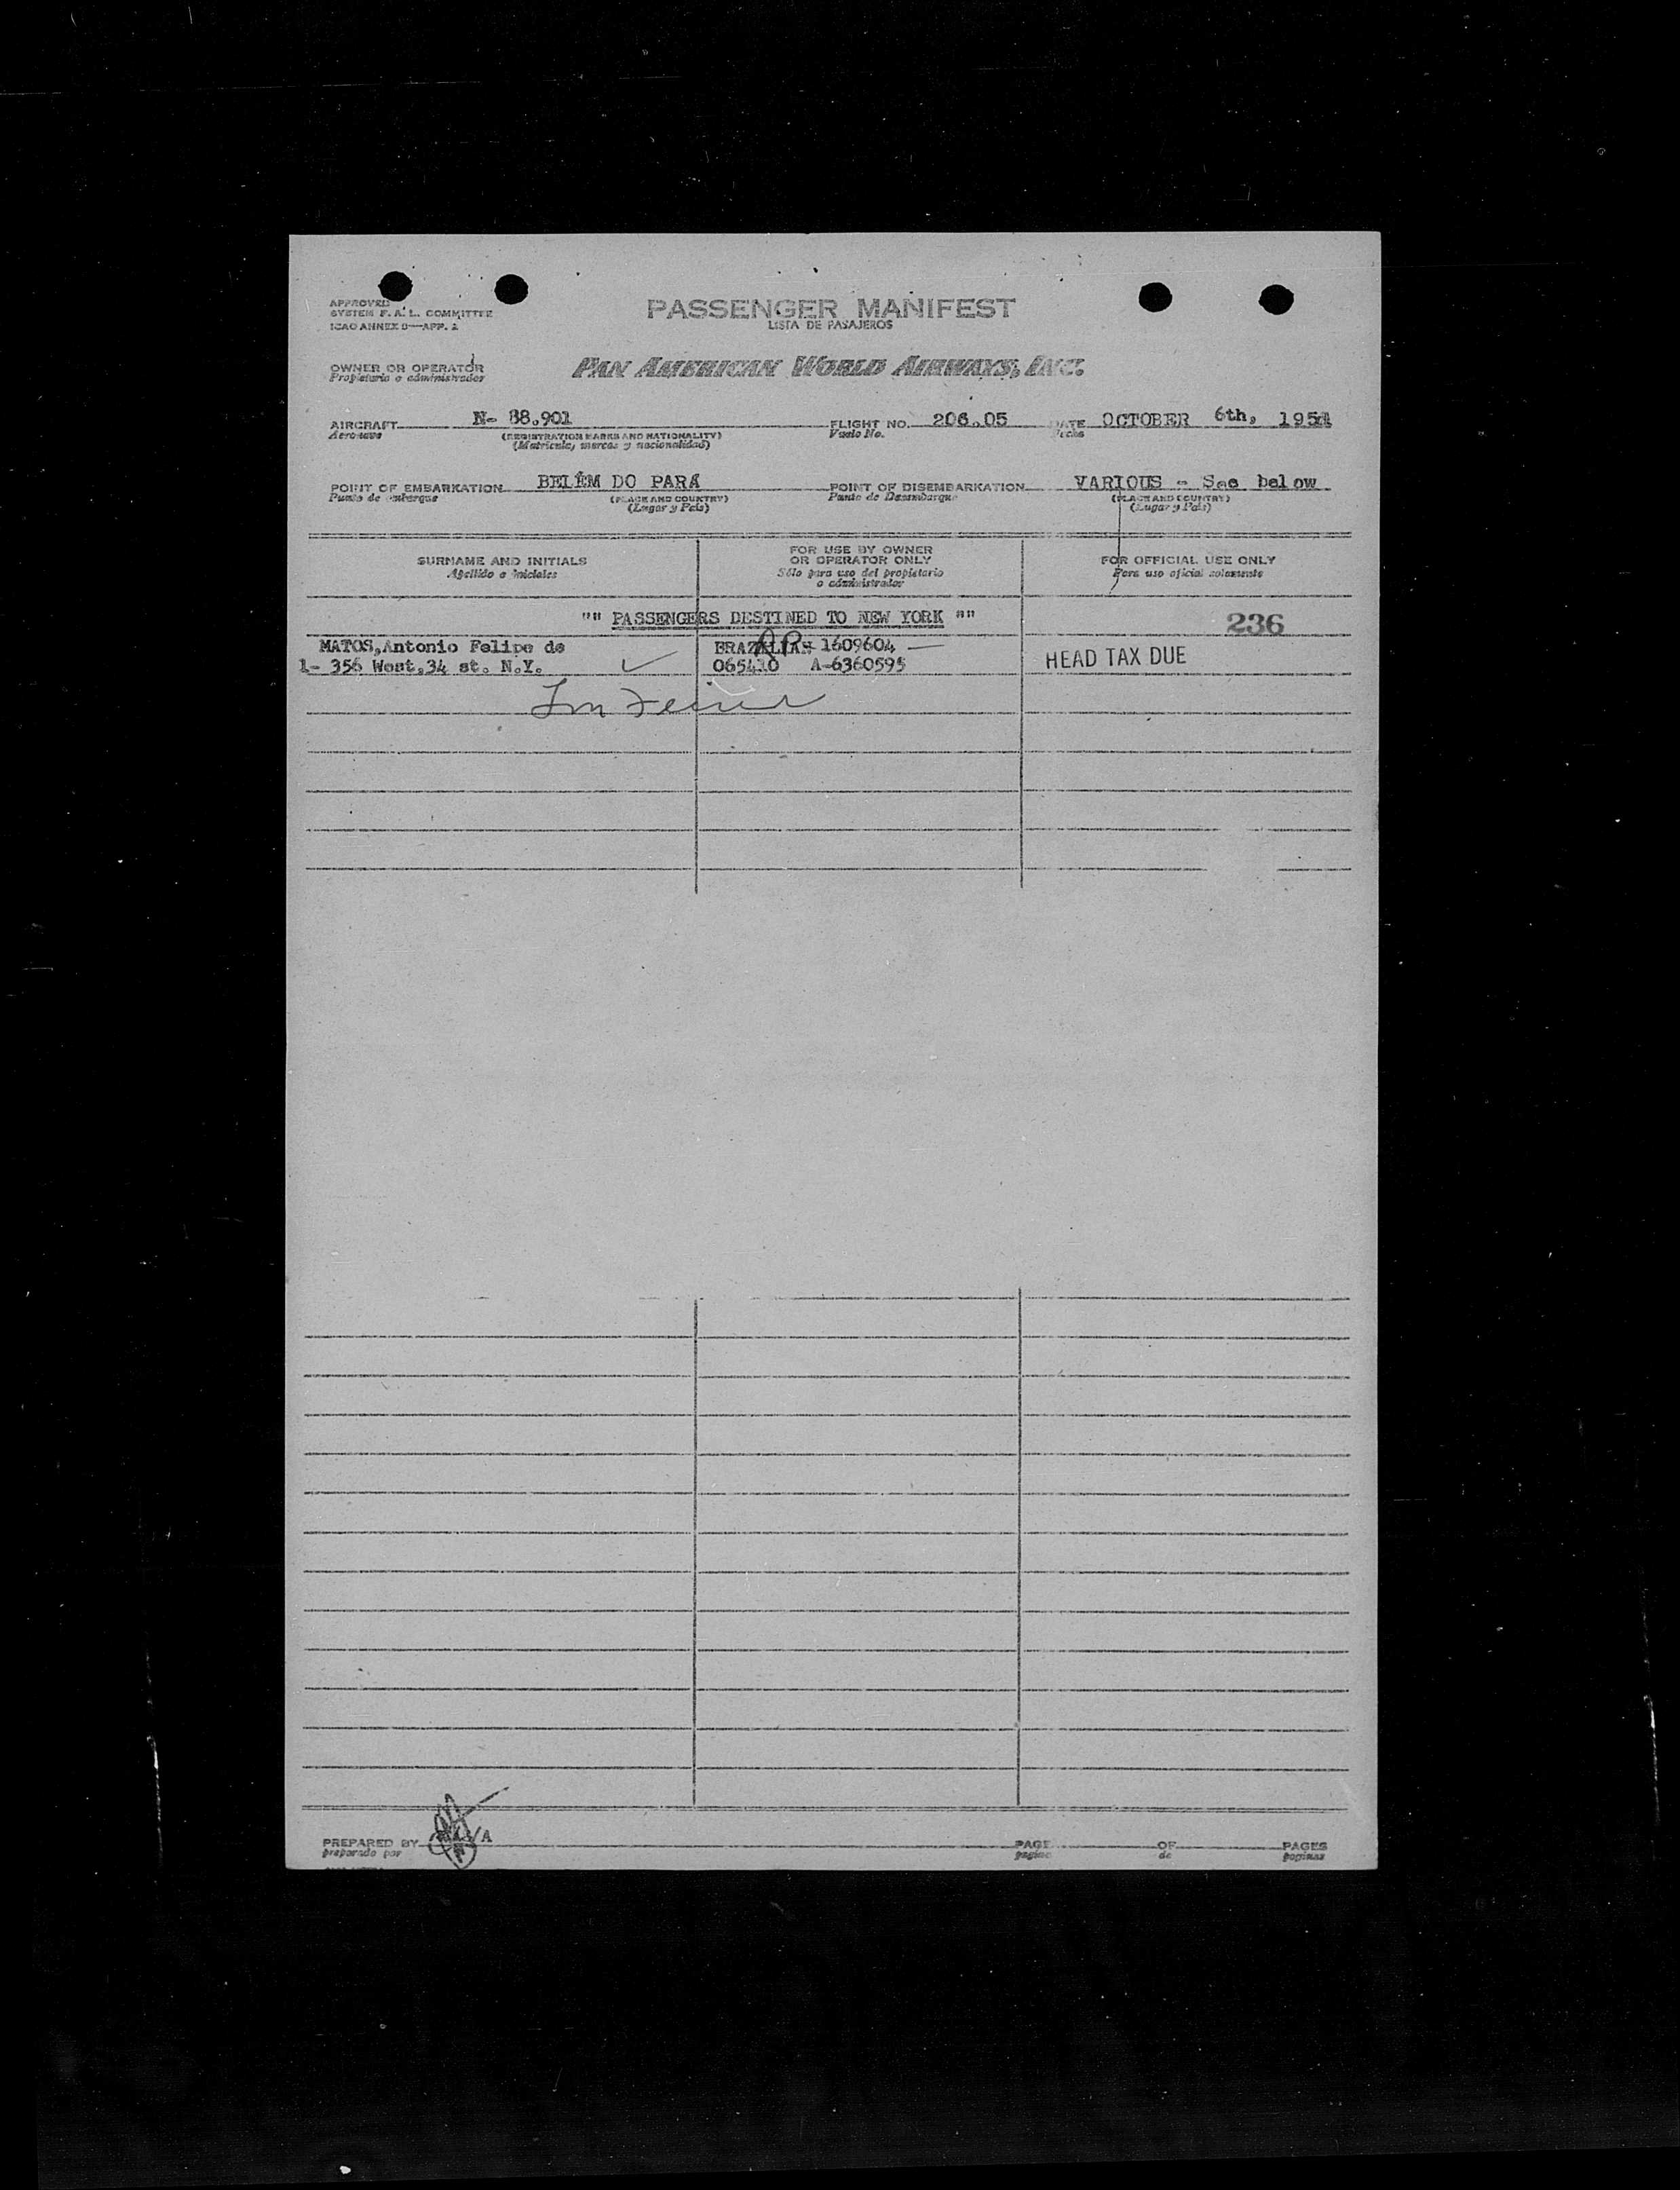 APPROVED
SYSTEM F. A. L. COMMITTEE
ICAO ANNEX 9—APP. 2
PASSENGER MANIFEST
LISTA DE PASAJEROS
OWNER OR OPERATOR
Propietario o administrador
PAN AMERICAN WORLD AIRWAYS, INC.
AIRCRAFT N- 88.901 FLIGHT NO. 206.05 DATE OCTOBER 6th, 1951
Aeronave (REGISTRATION MARKS AND NATIONALITY) Vuelo No. Fecha
(Matricula, marcas y nacionalidad)
POINT OF EMBARKATION BELÉM DO PARÁ POINT OF DISEMBARKATION VARIOUS - See below
Punto de embarque (PLACE AND COUNTRY) Punto de Desembarque (PLACE AND COUNTRY)
(Lugar y País) (Lugar y País)
SURNAME AND INITIALS FOR USE BY OWNER OR OPERATOR ONLY FOR OFFICIAL USE ONLY
Apellido e iniciales Sólo para uso del propietario o administrador Para uso oficial solamente
"" PASSENGERS DESTINED TO NEW YORK "" 236
MATOS,Antonio Felipe de BRAZILIAN 1609604
1- 356 West.34 st. N.Y. 065410 A-6360595 HEAD TAX DUE
PREPARED BY PAGE OF PAGES
preparado por pagina de paginas